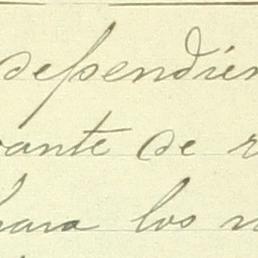 dependien
vante de r
para los n